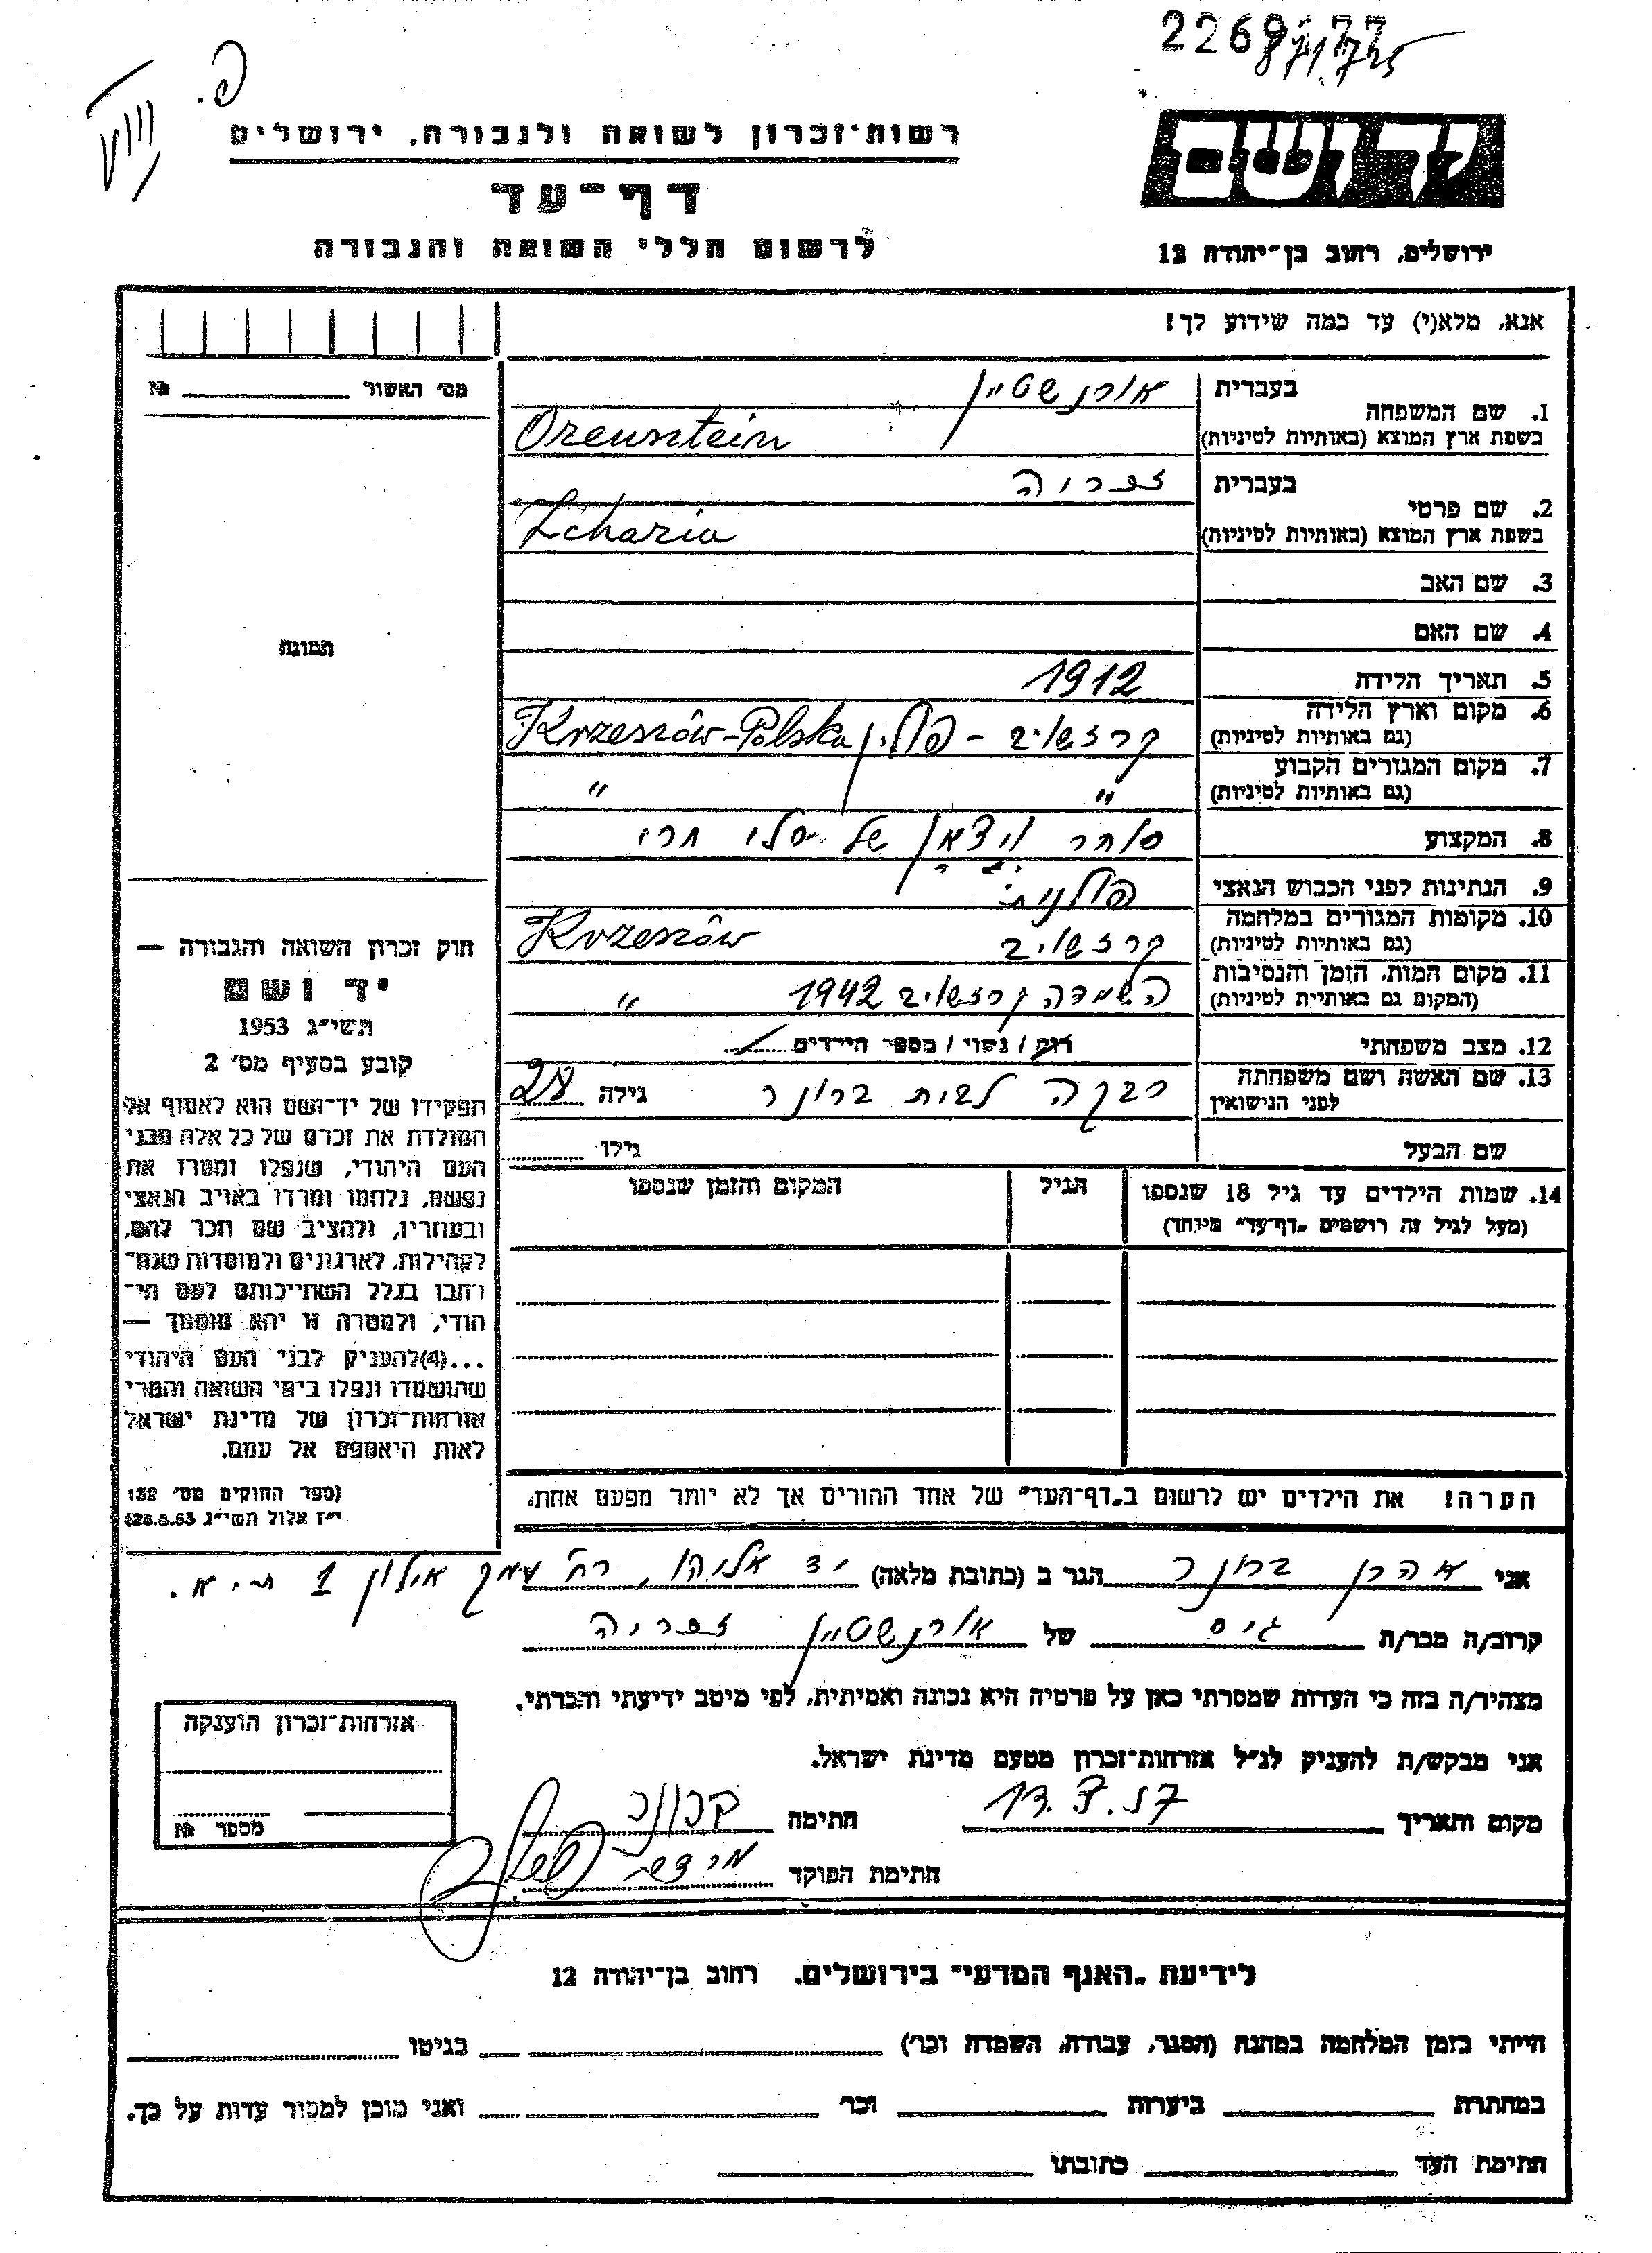 226
יד ושם
ירושלים, רחוב בן־יהודה 12
רשות־זכרון לשואה ולגבורה, ירושלים
דף־עד
לרשום חללי השואה והגבורה
אנא, מלא(י) עד כמה שידוע לך!
מס׳ האשור №
תמונה
1. שם המשפחה
בעברית אורנשטיין
בשפת ארץ המוצא (באותיות לטיניות) Orenstein
2. שם פרטי
בעברית זכריה
בשפת ארץ המוצא (באותיות לטיניות) Zcharia
3. שם האב
4. שם האם
5. תאריך הלידה 1912
6. מקום וארץ הלידה
(גם באותיות לטיניות) קרזשוב - פולין Krzeszów-Polska
7. מקום המגורים הקבוע
(גם באותיות לטיניות) " "
8. המקצוע סוחר
9. הנתינות לפני הכבוש הנאצי פולנית
10. מקומות המגורים במלחמה
(גם באותיות לטיניות) קרזשוב Krzeszów
11. מקום המות, הזמן והנסיבות
(המקום גם באותיות לטיניות) השמדה קרזשוב 1942 "
12. מצב משפחתי רווק / נשוי / מספר הילדים
13. שם האשה ושם משפחתה
לפני הנישואין רבקה לבית ברונר גילה 28
שם הבעל גילו
14. שמות הילדים עד גיל 18 שנספו הגיל המקום והזמן שנספו
(מעל לגיל זה רושמים „דף־עד" מיוחד)
הערה! את הילדים יש לרשום ב„דף־העד" של אחד ההורים אך לא יותר מפעם אחת.
חוק זכרון השואה והגבורה —
יד ושם
תשי״ג 1953
קובע בסעיף מס׳ 2
תפקידו של יד־ושם הוא לאסוף אל
המולדת את זכרם של כל אלה מבני
העם היהודי, שנפלו ומסרו את
נפשם, נלחמו ומרדו באויב הנאצי
ובעוזריו, ולהציב שם וזכר להם,
לקהילות, לארגונים ולמוסדות שנח־
רבו בגלל השתייכותם לעם הי־
הודי, ולמטרה זו יהא מוסמך —
...(4)להעניק לבני העם היהודי
שהושמדו ונפלו בימי השואה והמרי
אזרחות־זכרון של מדינת ישראל
לאות היאספם אל עמם.
(ספר החוקים מס׳ 132
י״ז אלול תשי״ג 28.8.53)
אני אהרן ברונר הגר ב (כתובת מלאה) יד אליהו, רח׳ עמק אילון 1 ת.א.
קרוב/ה מכר/ה גיס של אורנשטיין זכריה
מצהיר/ה בזה כי העדות שמסרתי כאן על פרטיה היא נכונה ואמיתית, לפי מיטב ידיעתי והכרתי.
אני מבקש/ת להעניק לנ״ל אזרחות־זכרון מטעם מדינת ישראל.
מקום ותאריך חתימה ברונר
חתימת הפוקד
אזרחות־זכרון הוענקה
מספר №
לידיעת „האגף המדעי" בירושלים, רחוב בן־יהודה 12
הייתי בזמן המלחמה במחנה (הסגר, עבודה, השמדה וכו׳) בגיטו
במחתרת ביערות וכו׳ ואני מוכן למסור עדות על כך.
חתימת העד כתובתו